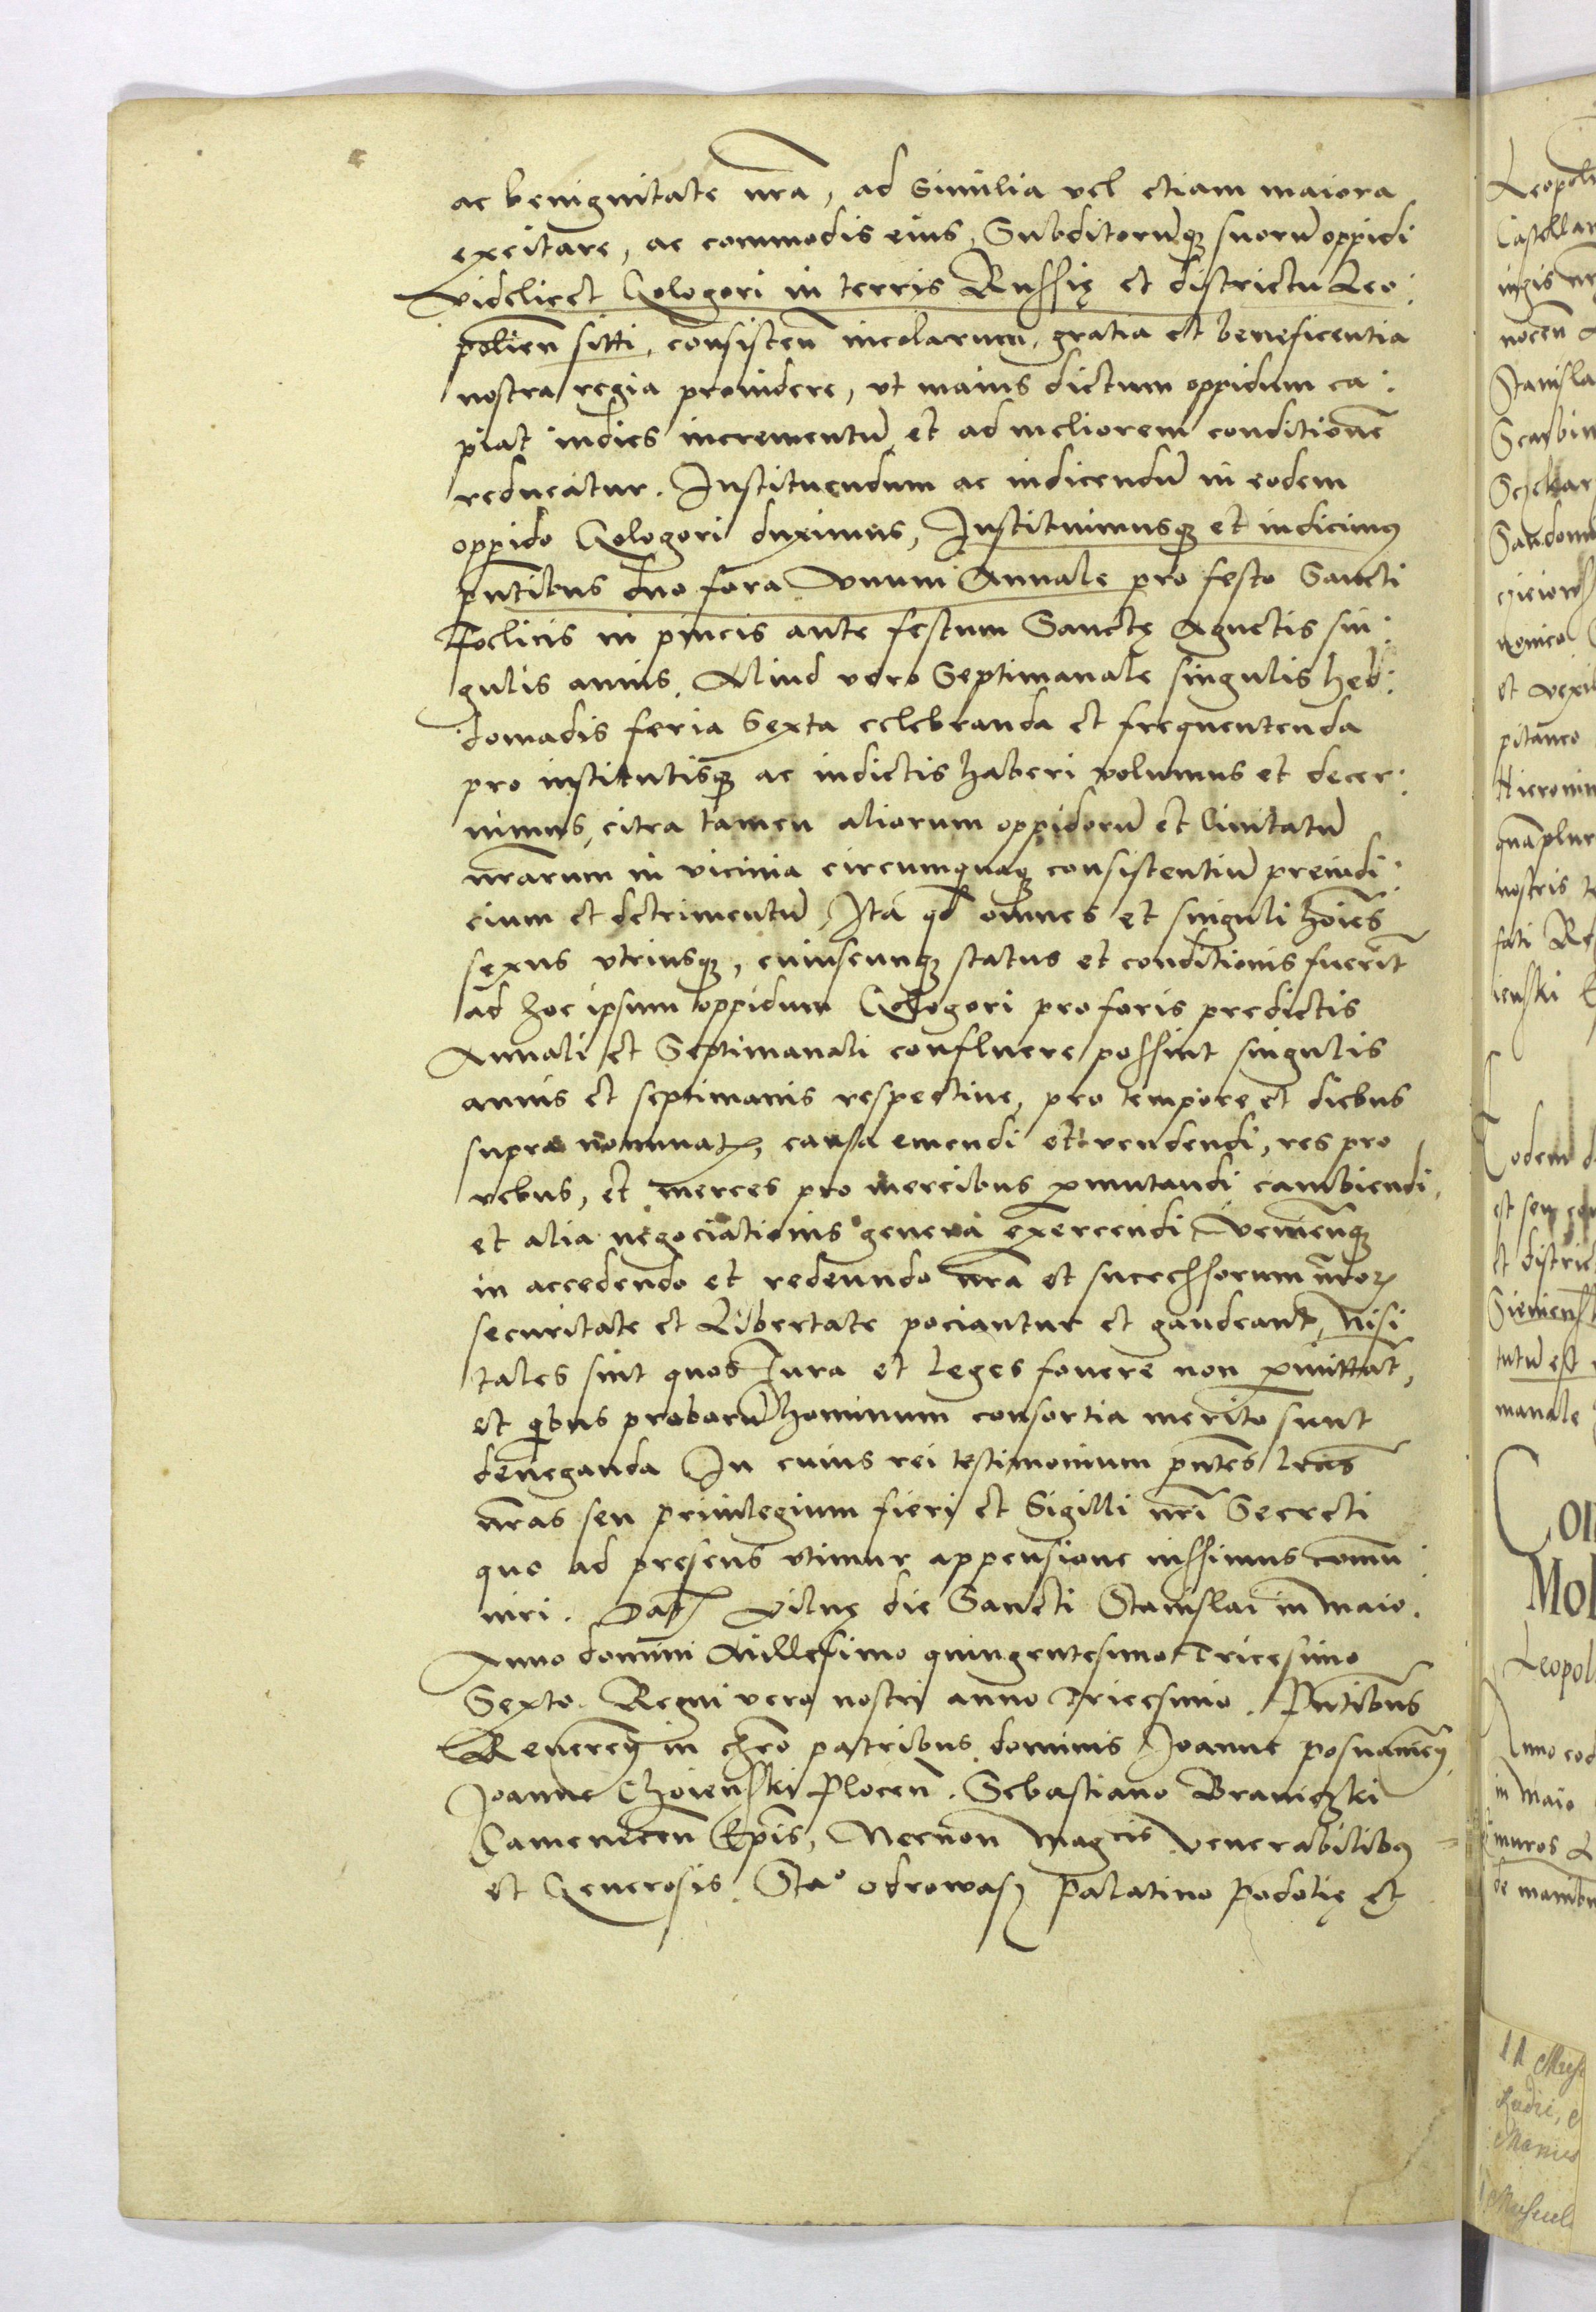 ac benignitate nra, ad similia vel etiam maiora
excitare, ac commodis eius, Subditorūq; suorū oppidi
videlicet Gologori in terris Russię et districtu Leo:
polien̄ sitti, consisten̄ incolarum, gratia et beneficentia
nostra regia prouidere, vt maius dictum oppidum ca:
piat indies incrementū et ad meliorem conditionē
reducatur. Instituendum ac indicendū in eodem
oppido Gologori duximus, Instituimusq; et indicimus
pn̄tibus duo fora Vnum Annale pro festo Sancti
Foelicis in pincis ante festum Sanctę Agnetis sin:
gulis annis. Aliud vero Septimanale singulis heb:
domadis feria Sexta celebranda et frequentenda
pro institutisq; ac indictis haberi volumus et decer:
nimus, citra tamen aliorum oppidorū et Ciuitatū
nr̄arum in vicinia circumquaq; consistentiū preiudi:
cium et detrimentū, Ita qd omnes et singuli hoīes
sexus vtriusq;, cuiuscunq; status et conditionis fuerīt
ad hoc ipsum oppidum Gologori pro foris predictis
Annali et Septimanali confluere possint singulis
annis et septimanis respectiue, pro tempore et diebus
supra nominatꝭ, causa emendi et vendendi, res pro
rebus, et merces pro mercibus ꝑmutandi cambiendi,
et alia negociationis genera exercendi, Veniendoq;
in accedendo et redeundo nr̄a et successorum nr̄oꝝ
securitate et Libertate pociantur et gaudeant, Nisi
tales sint quos Iura et leges fouere non ꝑmittūt,
et qibus proborū hominum consortia merito sunt
deneganda In cuius rei testimonium pn̄tes lr̄as
nr̄as seu priuilegium fieri et Sigilli nr̄i Secreti
quo ad presens vtimur appensione iussimus commu
niri. Datꝭ Vilnę die Sancti Stanislai in maio.
Anno domini Millesimo quingentesimo Tricesimo
Sexto. Regni vero nostri anno Tricesimo. Pn̄tibus
Reueren̄ in chr̄o patribus dominis Joanne posnanien̄,
Joanne Choienski Plocen̄. Sebastiano Braniczki
Camenecen̄ Ep̄is, Necnon Magcis Venerabilibus
et Generosis. Stao Odrowasz Palatino Podolię et